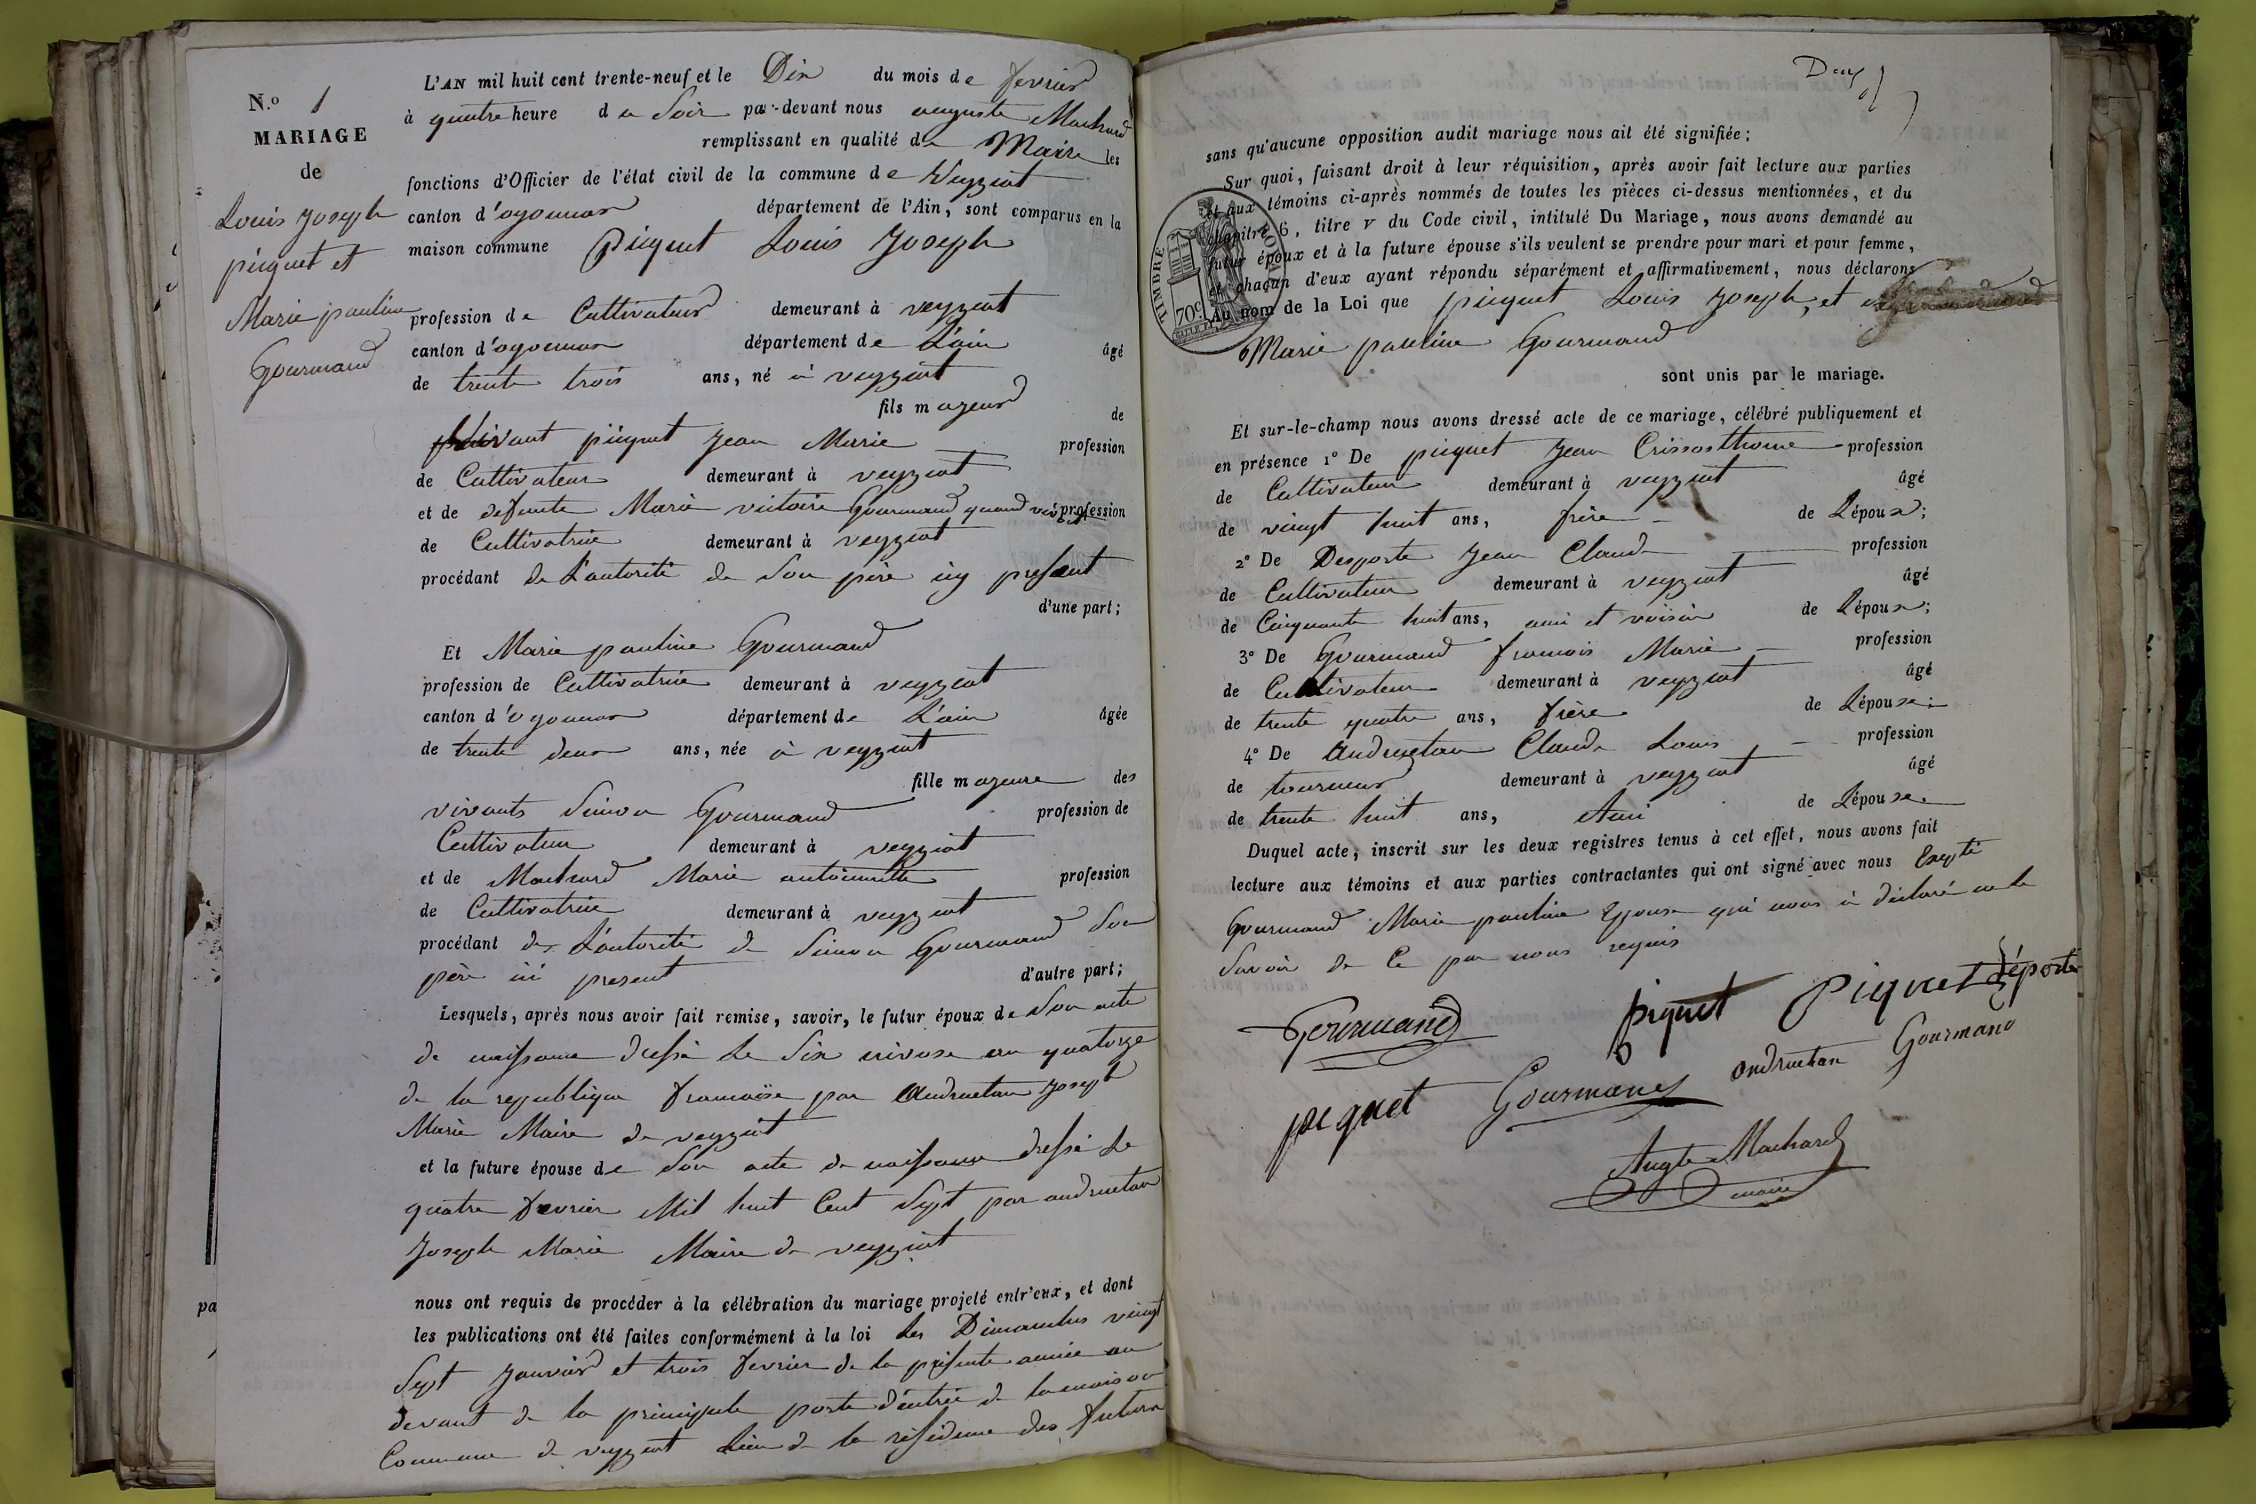 N.o 1
MARIAGE
de
Louis Joseph
piquet et
Marie pauline
Gourmand
L'AN mil huit cent trente-neuf et le Dix du mois de fevrier
à quatre heure du Soir par-devant nous auguste Machard
remplissant en qualité de Maire les
fonctions d'Officier de l'état civil de la commune de Veyziat
canton d'oyonnax département de l'Ain, sont comparus en la
maison commune Piquet Louis Joseph
profession de Cultivateur demeurant à veyziat
canton d'oyonnax département de L'ain âgé
de trente trois ans, né à veyziat
fils majeur de
vivant piquet Jean Marie profession
de Cultivateur demeurant à veyziat
et de defunte Marie victoire Gourmand quand vivait profession
de Cultivatrice demeurant à veyziat
procédant de L'autorité de Son père icy present
d'une part;
Et Marie pauline Gourmand
profession de Cultivatrice demeurant à veyziat
canton d'oyonnax département de L'ain âgée
de trente deux ans, née à veyziat
fille majeure des
vivants Simon Gourmand profession de
Cultivateur demeurant à veyziat
et de Machard Marie antoinette profession
de Cultivatrice demeurant à veyziat
procédant de L'autorité de Simon Gourmand Son
père ici present d'autre part;
Lesquels, après nous avoir fait remise, savoir, le futur époux de Son acte
de naissance dressé le Six nivose an quatorze
de la republique francaise par Andruetan Joseph
Marie Maire de veyziat
et la future épouse de Son acte de naissance dressé le
quatre fevrier Mil huit Cent Sept par andruetan
Joseph Marie Maire de veyziat
nous ont requis de procéder à la célébration du mariage projeté entr'eux, et dont
les publications ont été faites conformément à la loi les Dimanches vingt
Sept Janvier et trois fevrier de la présente année au
devant de la principale porte d'entrée de la maison
Commune de veyziat lieu de la résidence des futurs
Deux
sans qu'aucune opposition audit mariage nous ait été signifiée;
Sur quoi, faisant droit à leur réquisition, après avoir fait lecture aux parties
et aux témoins ci-après nommés de toutes les pièces ci-dessus mentionnées, et du
chapitre 6, titre v du Code civil, intitulé Du Mariage, nous avons demandé au
futur époux et à la future épouse s'ils veulent se prendre pour mari et pour femme,
et chacun d'eux ayant répondu séparément et affirmativement, nous déclarons
Au nom de la Loi que piquet Louis Joseph, et
Marie pauline Gourmand
sont unis par le mariage.
TIMBRE ROYAL
70c
Et sur-le-champ nous avons dressé acte de ce mariage, célébré publiquement et
en présence 1° De piquet Jean Crissosthome profession
de Cultivateur demeurant à veyziat âgé
de vingt huit ans, frère de Lépoux;
2° De Desporte Jean Claude profession
de Cultivateur demeurant à veyziat âgé
de Cinquante huit ans, ami et voisin de Lépoux;
3° De Gourmand francois Marie profession
de Cultivateur demeurant à veyziat âgé
de trente quatre ans, frère de Lépouse;
4° De Andruetan Claude Louis profession
de tourneur demeurant à veyziat âgé
de trente huit ans, Ami de Lépouse.
Duquel acte, inscrit sur les deux registres tenus à cet effet, nous avons fait
lecture aux témoins et aux parties contractantes qui ont signé avec nous Excepté
Gourmand Marie pauline Epouse qui nous à déclaré ne le
Savoir de Ce par nous requis
Gourmand piquet Piquet déporte
piquet Gourmand andruetan Gourmand
Augte Machard
maire